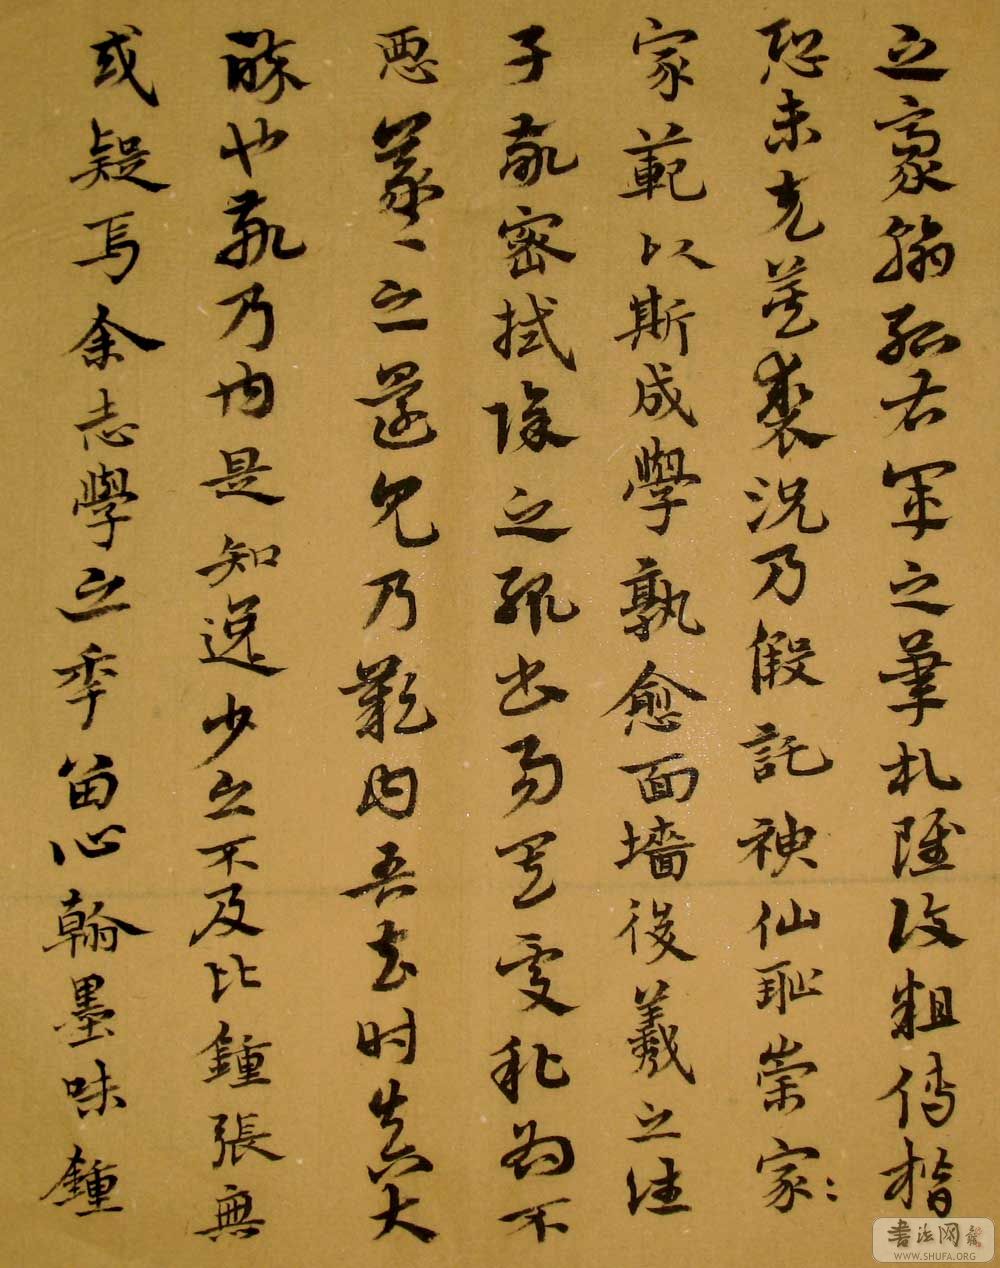 之豪翰紹右軍之筆札雖復粗傳楷
恐未克箕裘況乃假託神仙恥崇家
家範以斯成學孰愈面墻後羲之往
子敬密拭除之輒書易其處私為不
惡羲之還見乃歎曰吾去時真大
醉也敬乃內是知逸少之不及比鍾張無
或疑焉余志學之年留心翰墨味鍾
書法网
WWW.SHUFA.ORG